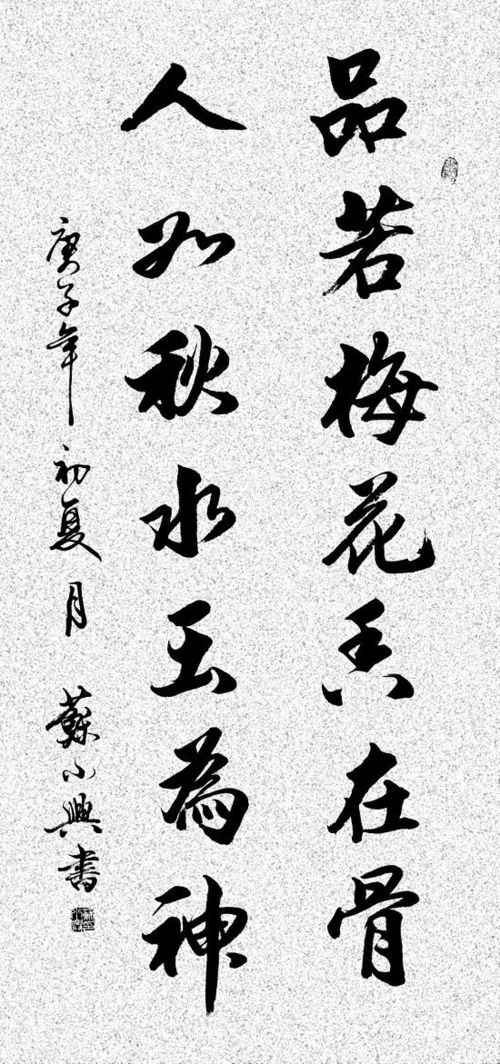 品若梅花香在骨
人如秋水玉为神
庚子年初夏月 苏小兴书